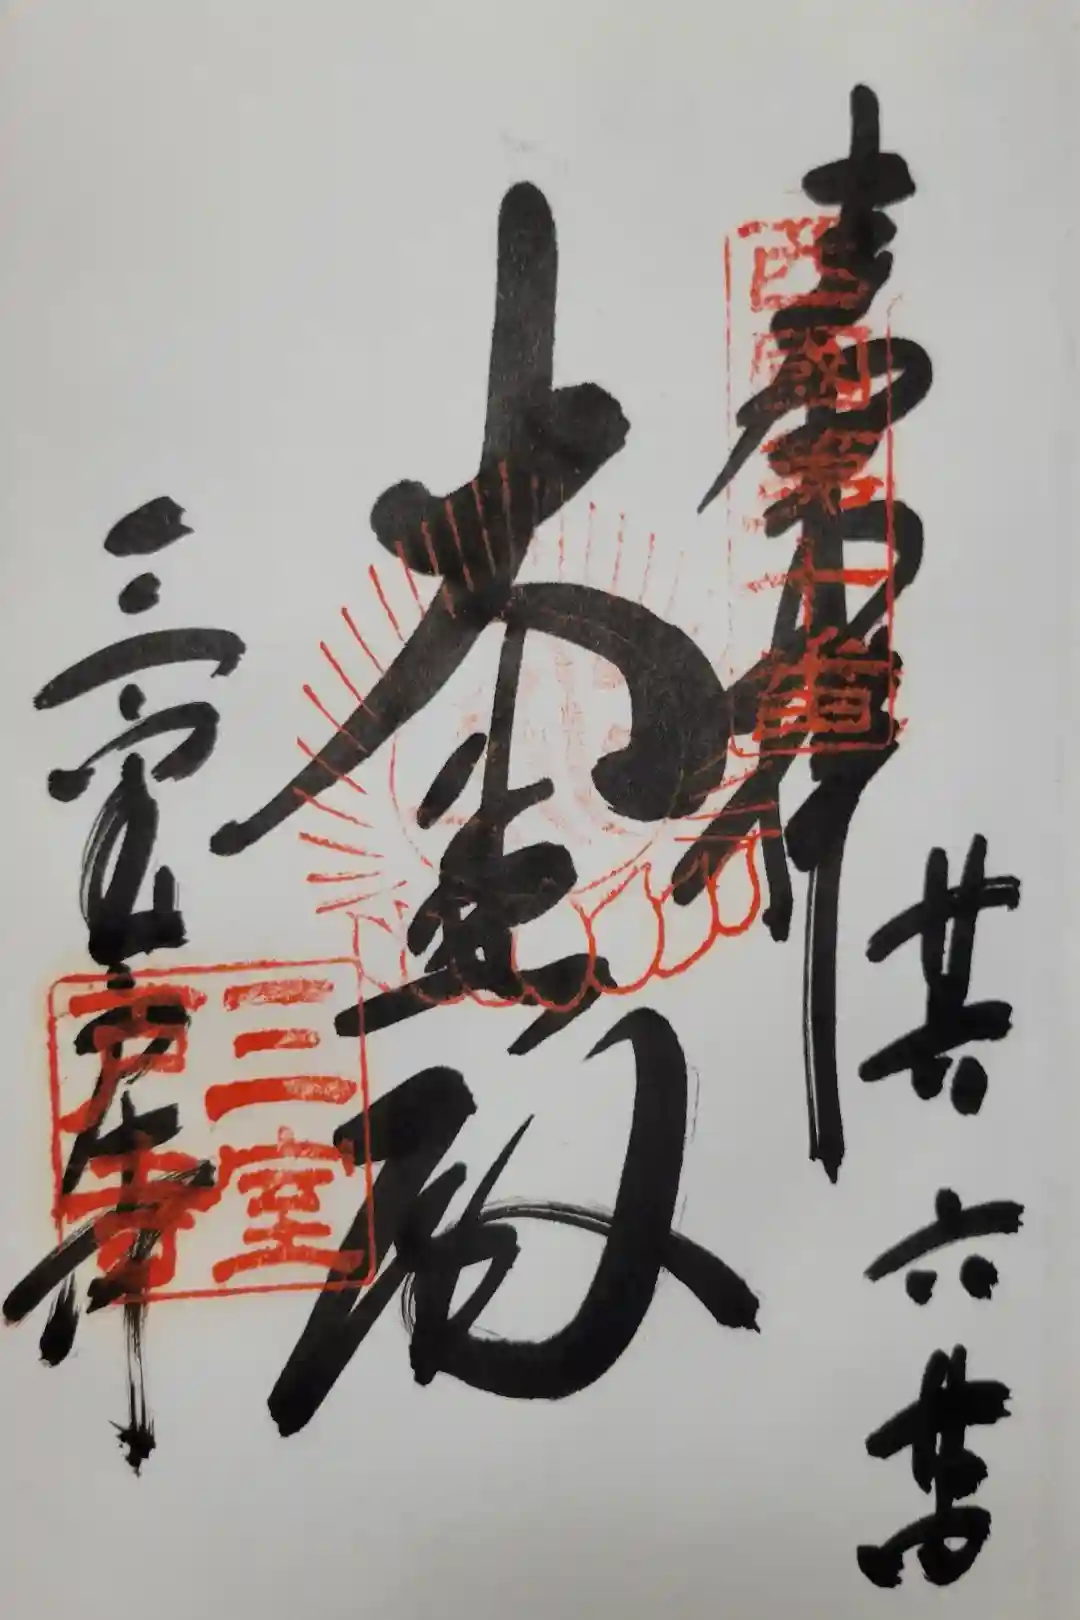 奉拝
西國第十番
六
大悲殿
三室戸寺
三室
戸寺